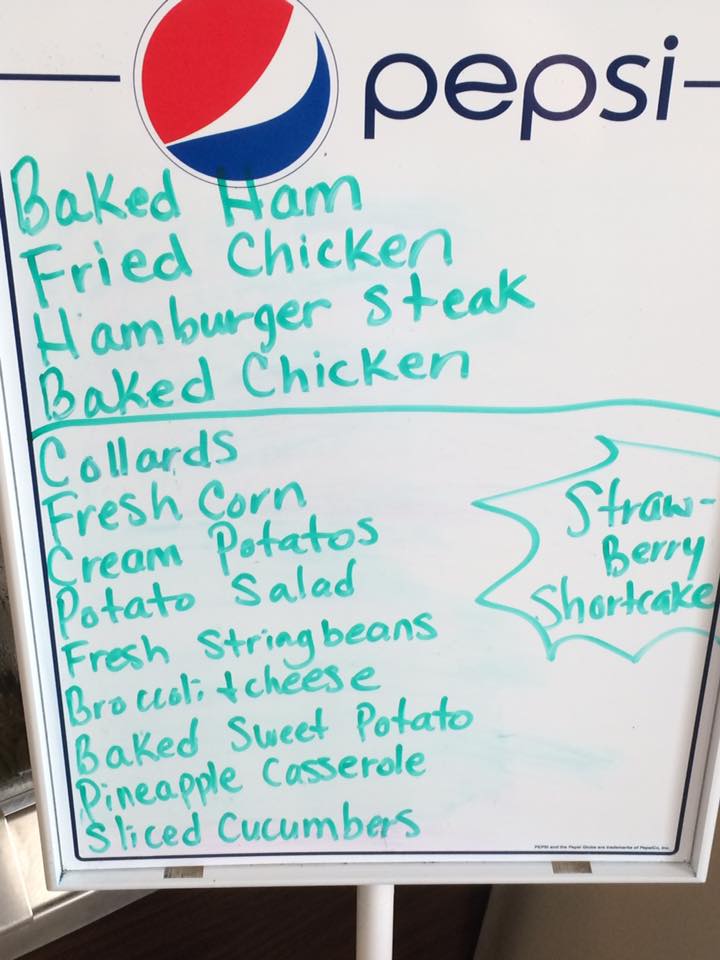 pepsi
Baked Ham
Fried Chicken
Hamburger Steak
Baked Chicken
Collards
Fresh Corn
Cream Potatos
Potato Salad
Fresh Stringbeans
Broccoli + cheese
Baked Sweet Potato
Pineapple Casserole
Sliced Cucumbers
Straw-
Berry
Shortcake
PEPSI and the Pepsi Globe are trademarks of PepsiCo, Inc.